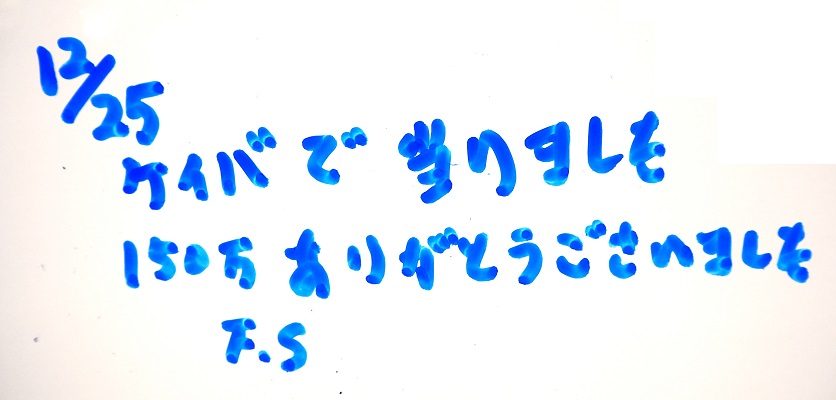 12/25
ケイバで当りました
150万ありがとうございました
F.S